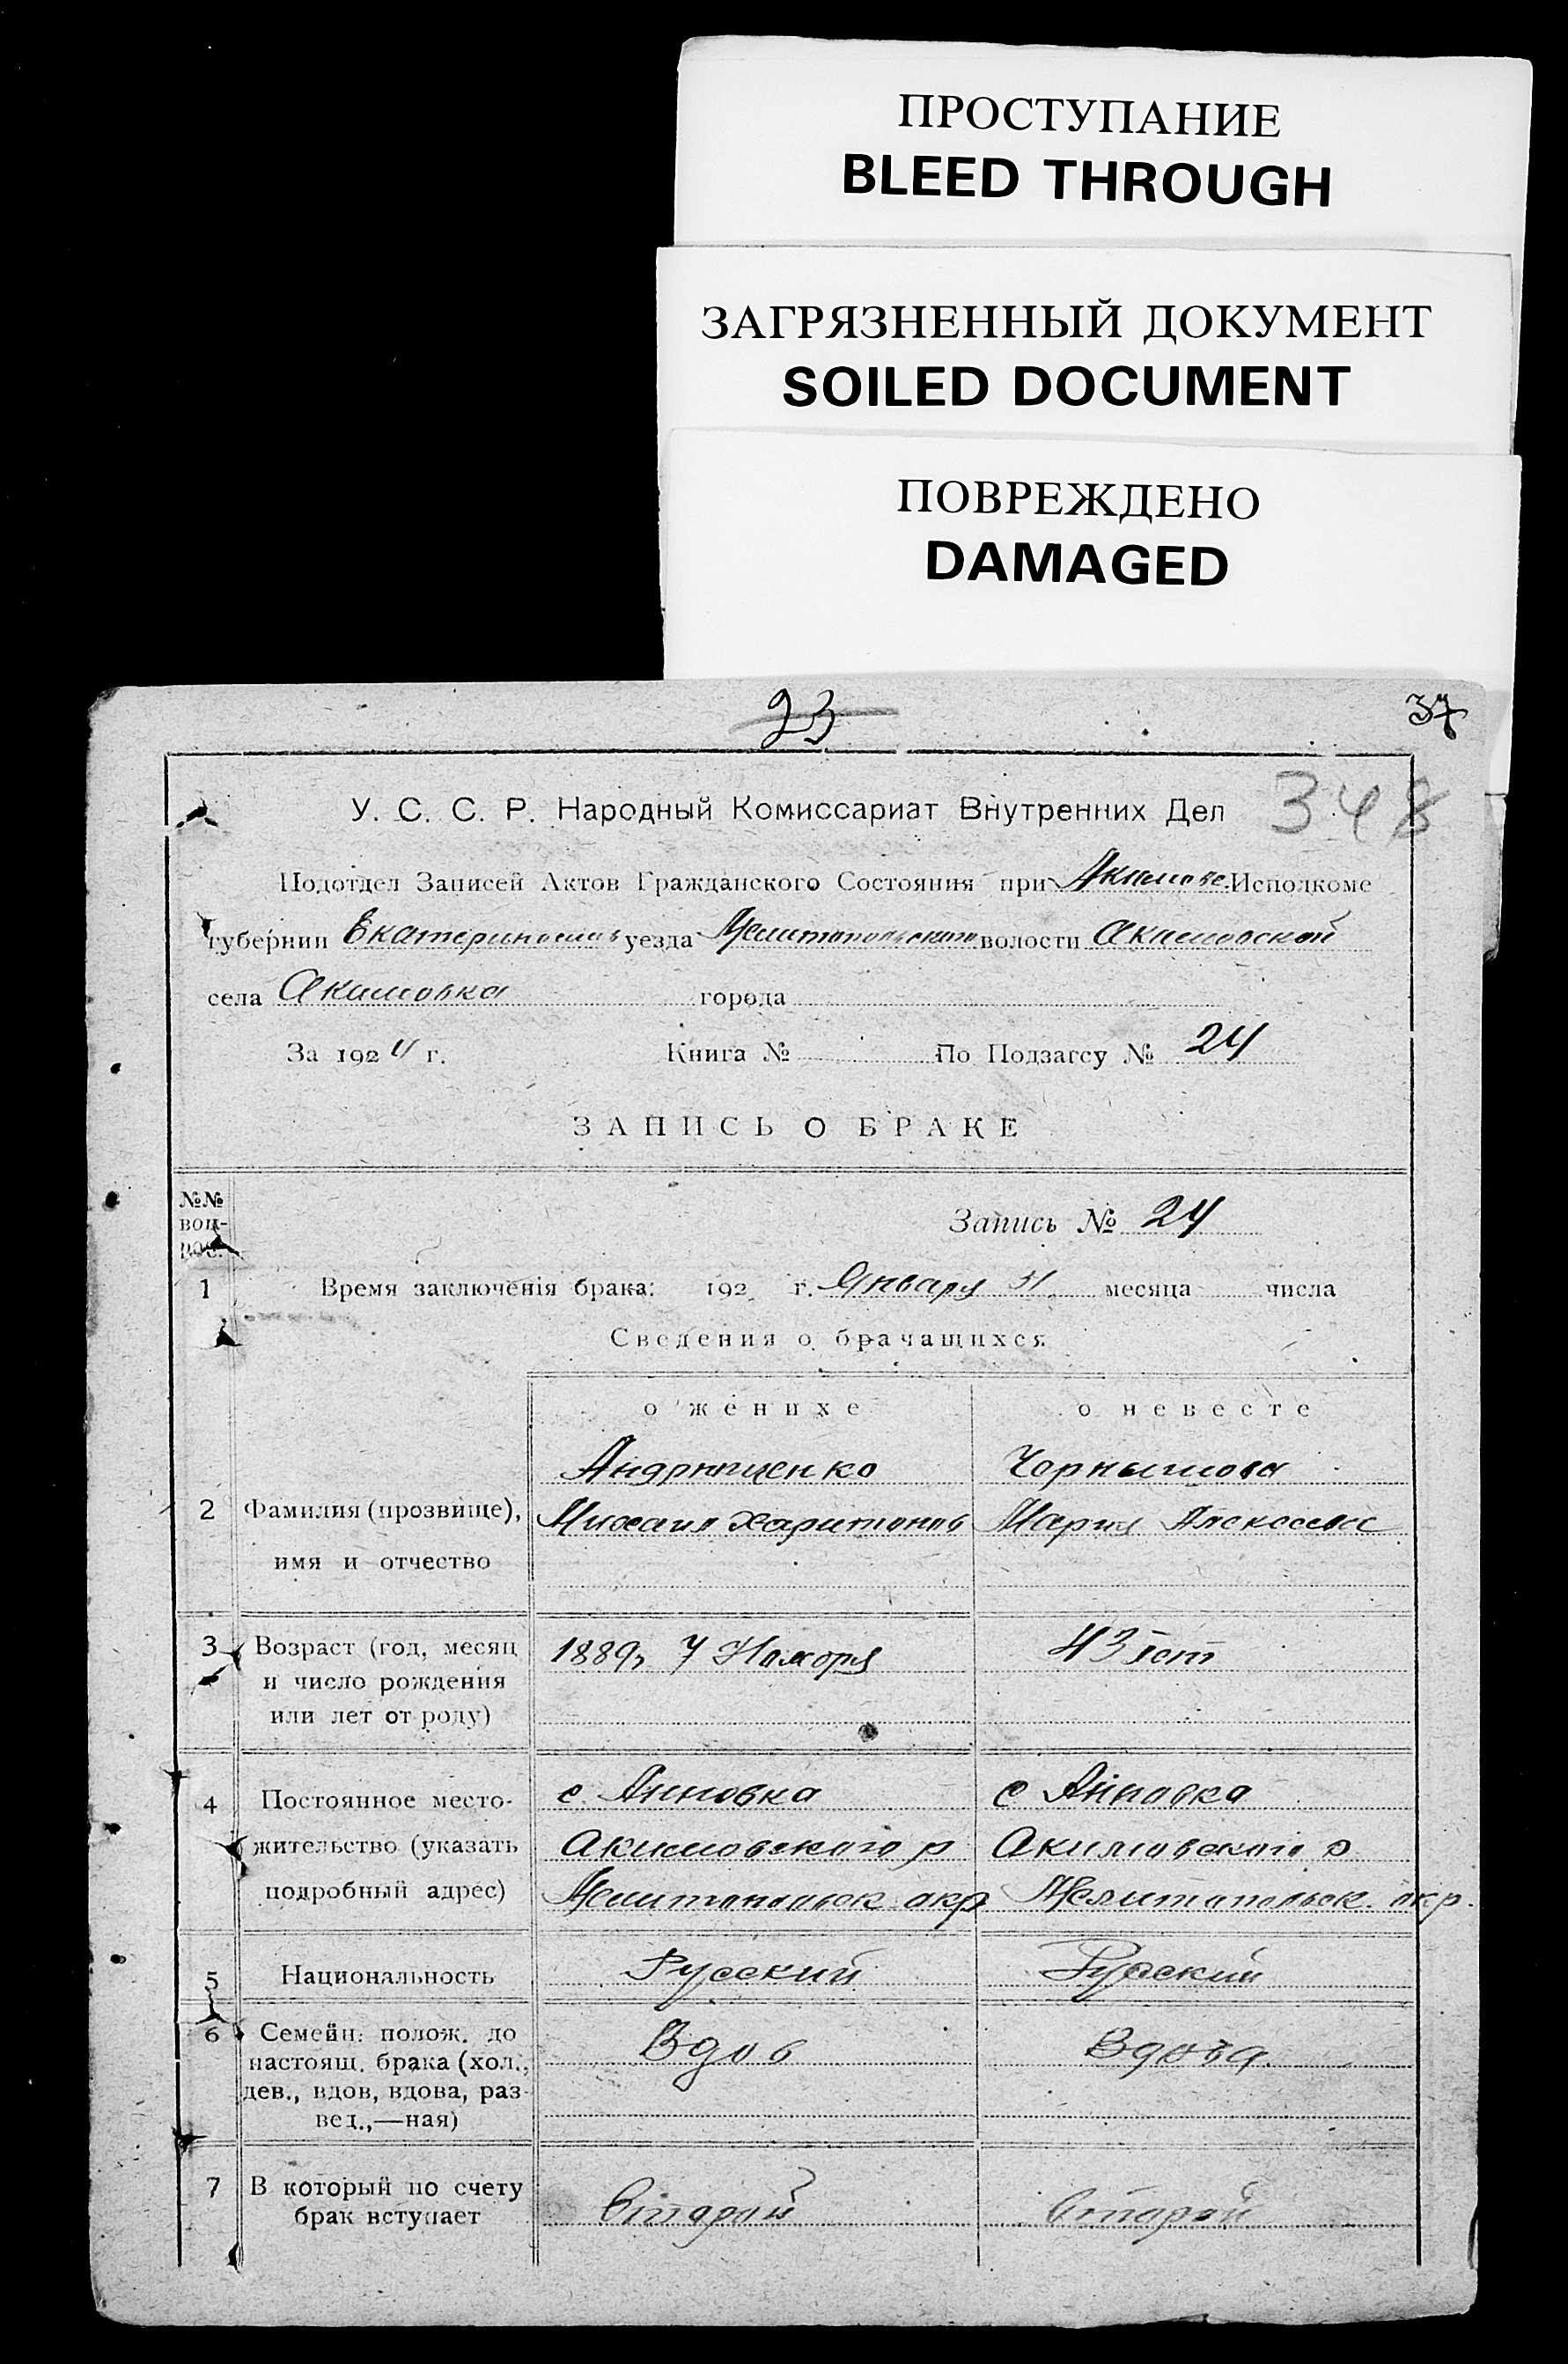 ПРОСТУПАНИЕ
BLEED THROUGH
ЗАГРЯЗНЕННЫЙ ДОКУМЕНТ
SOILED DOCUMENT
ПОВРЕЖДЕНО
DAMAGED
23
37
348
У. С. С. Р. Народный Комиссариат Внутренних Дел
Подотдел Записей Актов Гражданского Состояния при Акимове. Исполкоме
губернии Екатеринослав уезда Мелитопольского волости Акимовской
села Акимовка города
За 1924 г. Книга № По Подзагсу № 24
ЗАПИСЬ О БРАКЕ
№№ воп- рос.
Запись № 24
1 Время заключенія брака: 192 г. Января 31. месяца числа
Сведения о брачащихся
о женихе о невесте
Андрющенко Чернышова
2 Фамилия (прозвище), Михаил Харитонов Мария Алексеев
имя и отчество
3 Возраст (год, месяц 1889, 7 Ноября 43 лет
и число рождения
или лет от роду)
с. Анновка с Анновка
4 Постоянное место-
жительство (указать Акимовского р Акимовского р
подробный адрес) Мелитопольск окр Мелитопольск. окр.
5 Национальность Русский Русский
6 Семейн. полож. до Вдов Вдова
настоящ. брака (хол.,
дев., вдов, вдова, раз-
вед.,—ная)
7 В который по счету Второй Второй
брак вступает